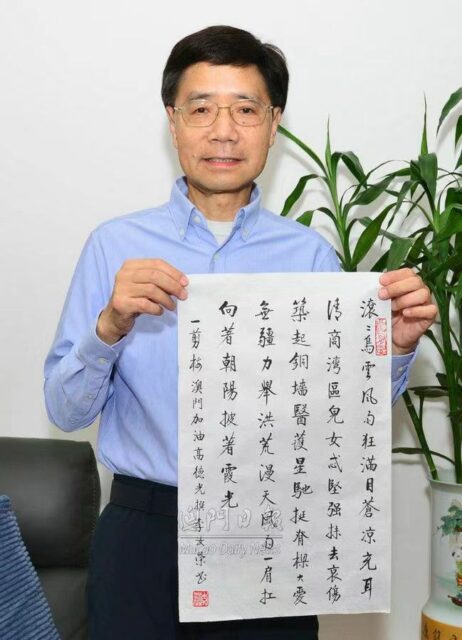 滾〻烏雲風雨狂滿目蒼凉充耳
清商灣區兒女志堅强抹去哀傷
築起銅墻醫護星馳挺脊樑大愛
無疆力舉洪荒漫天白一肩扛
向著朝陽披著霞光
一剪梅澳門加油高德光撰李榮書
澳門日報
Macao Daily News